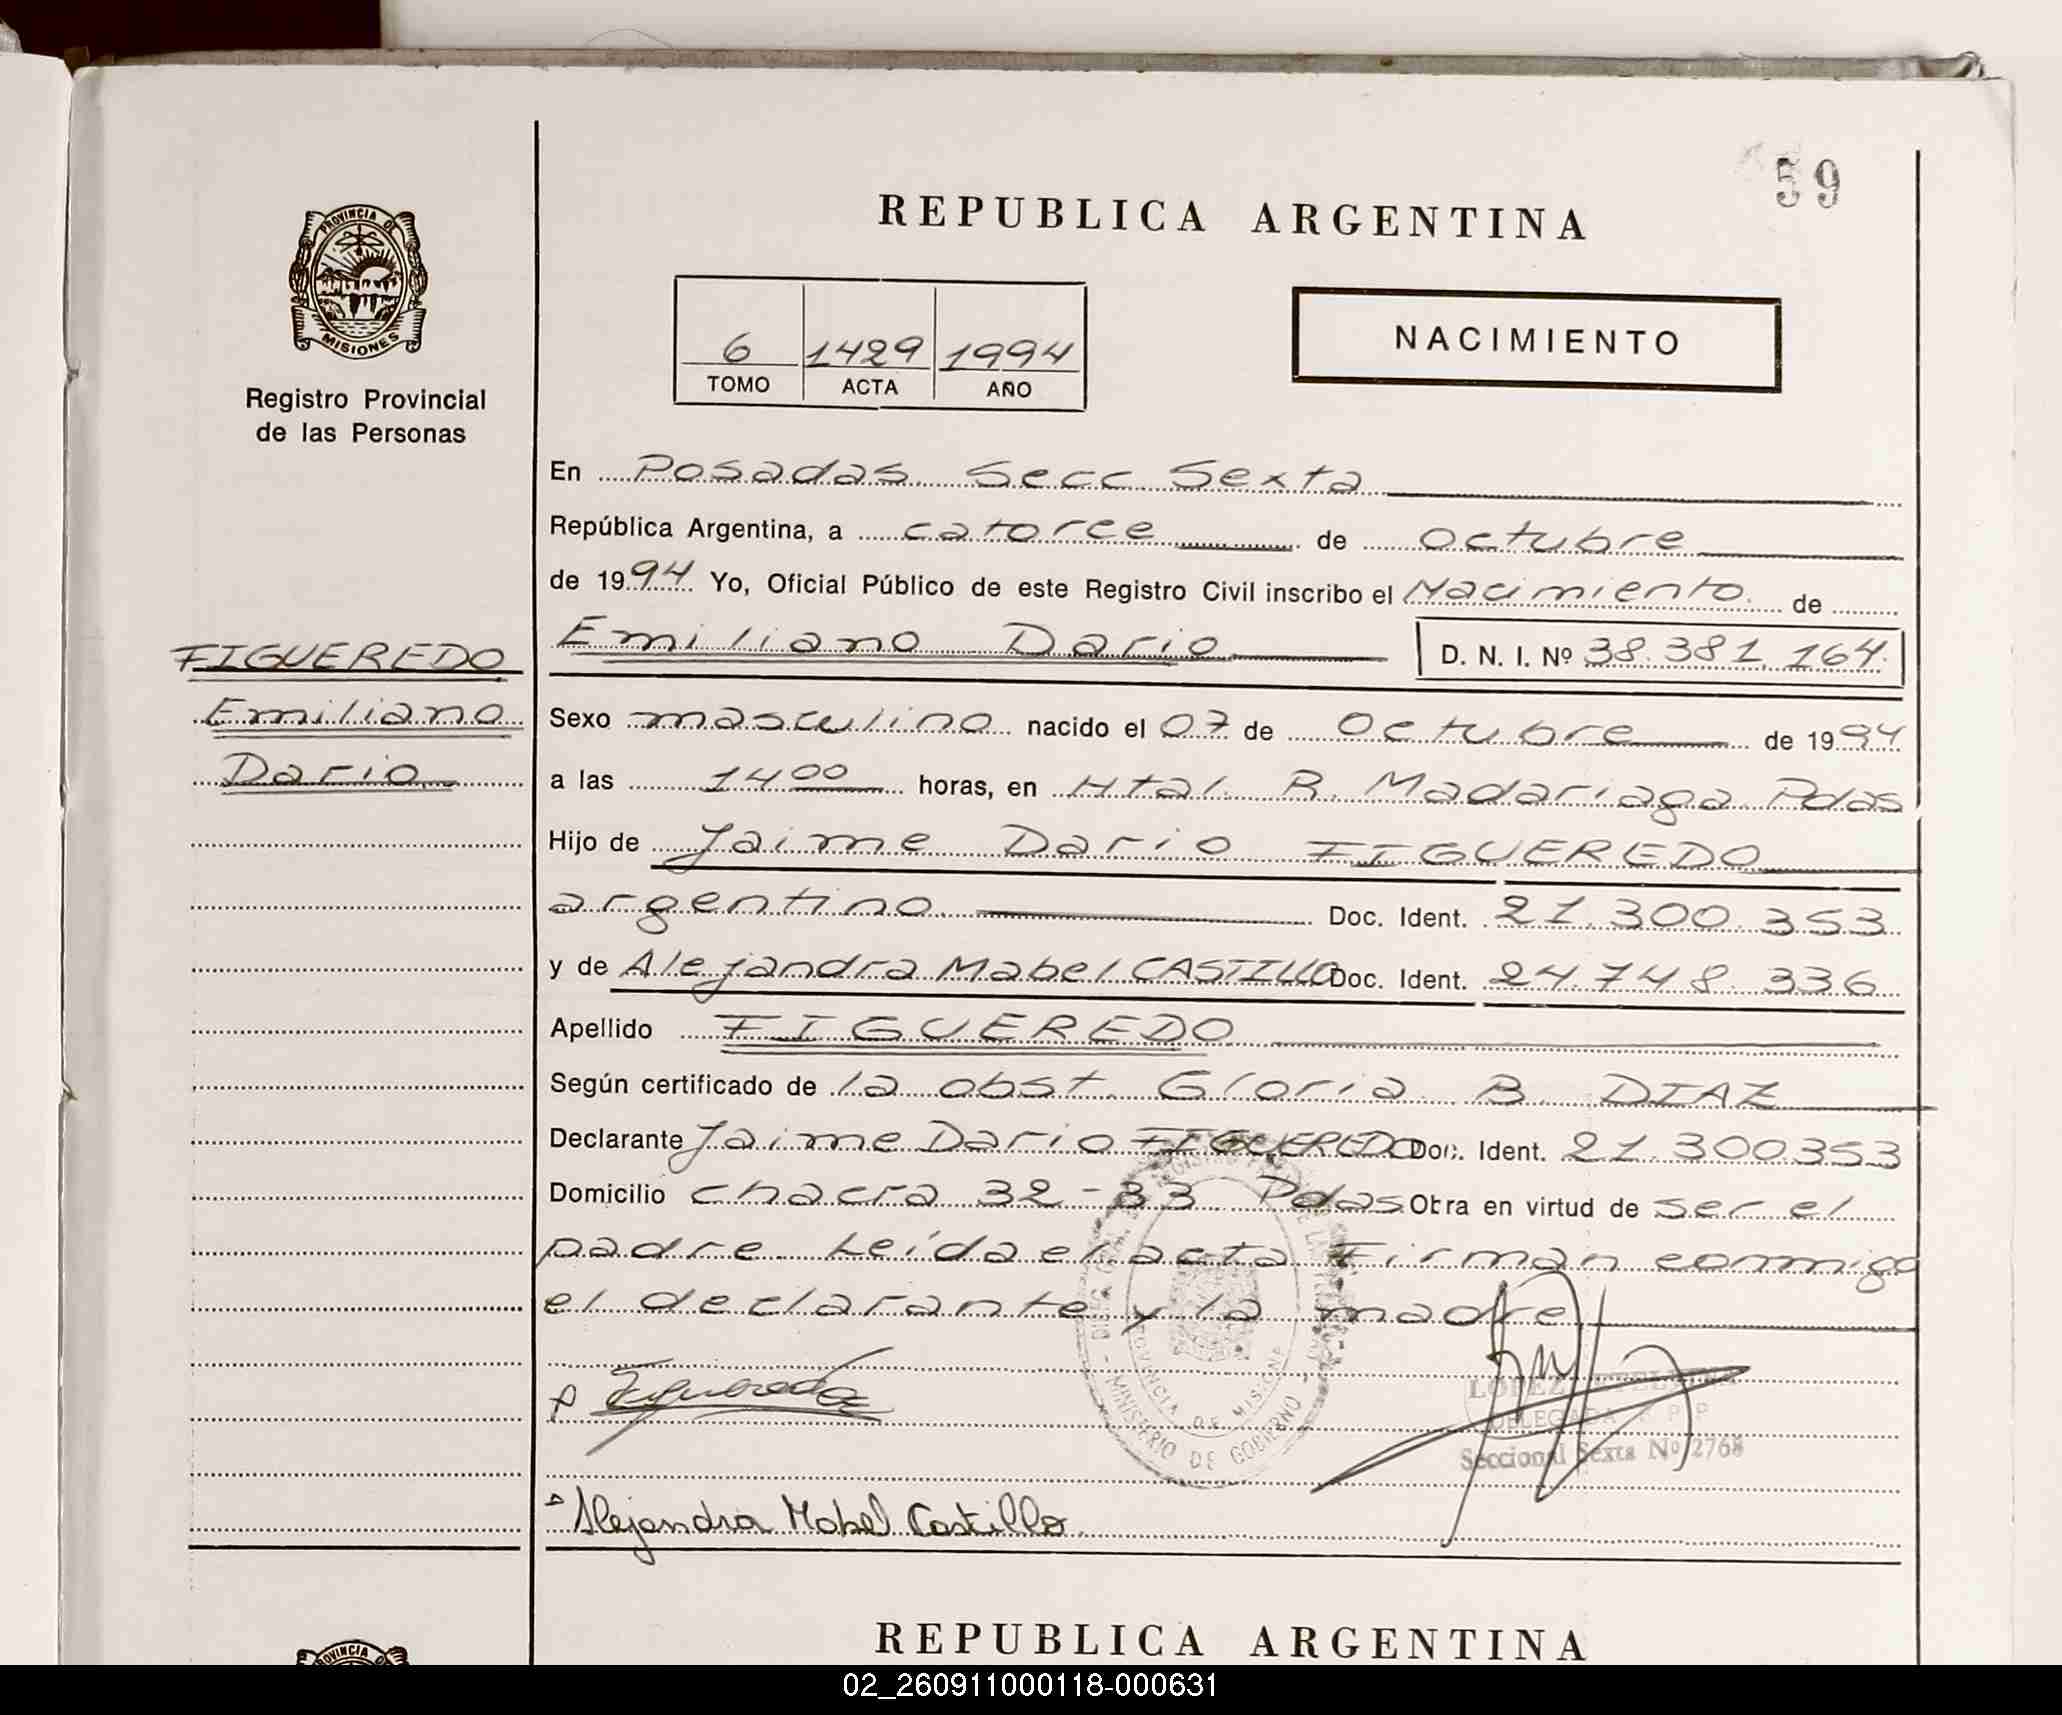 59
REPUBLICA ARGENTINA
PROVINCIA DE
MISIONES
Registro Provincial
de las Personas
6 1429 1994
TOMO ACTA AÑO
NACIMIENTO
En Posadas Secc Sexta
República Argentina, a catorce de octubre
de 1994 Yo, Oficial Público de este Registro Civil inscribo el Nacimiento de
Emiliano Dario D. N. I. Nº 38.381.164
FIGUEREDO
Emiliano
Dario
Sexo masculino nacido el 07 de Octubre de 1994
a las 14 00 horas, en Htal. R. Madariaga Pdas
Hijo de Jaime Dario FIGUEREDO
argentino Doc. Ident. 21.300.353
y de Alejandra Mabel CASTILLO Doc. Ident. 24.748.336
Apellido FIGUEREDO
Según certificado de la obst. Gloria B. DIAZ
Declarante Jaime Dario FIGUEREDO Doc. Ident. 21.300.353
Domicilio chacra 32-33 Pdas Obra en virtud de ser el
padre. Leída el acta Firman conmigo
el declarante y la madre
Figueredo
PROVINCIA DE MISIONES
MINISTERIO DE GOBIERNO
LOPEZ
DELEGADA R P P
Seccional Sexta Nº 2768
Alejandra Mabel Castillo
REPUBLICA ARGENTINA
PROVINCIA DE
02_260911000118-000631